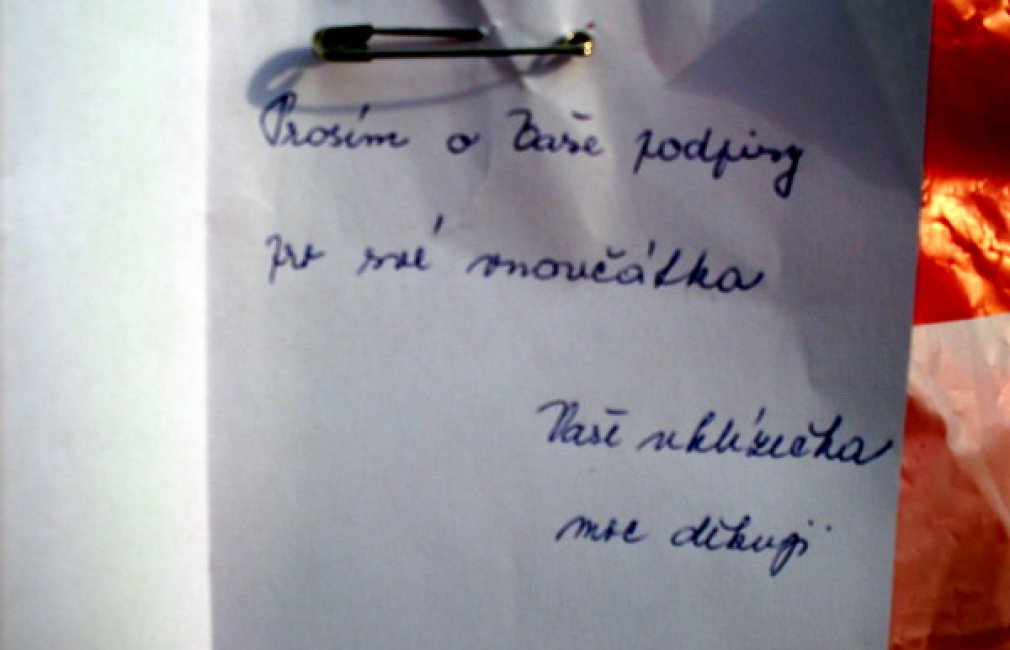 Prosím o Vaše podpisy
pro své vnoučátka
Vaše uklízečka
moc děkuji